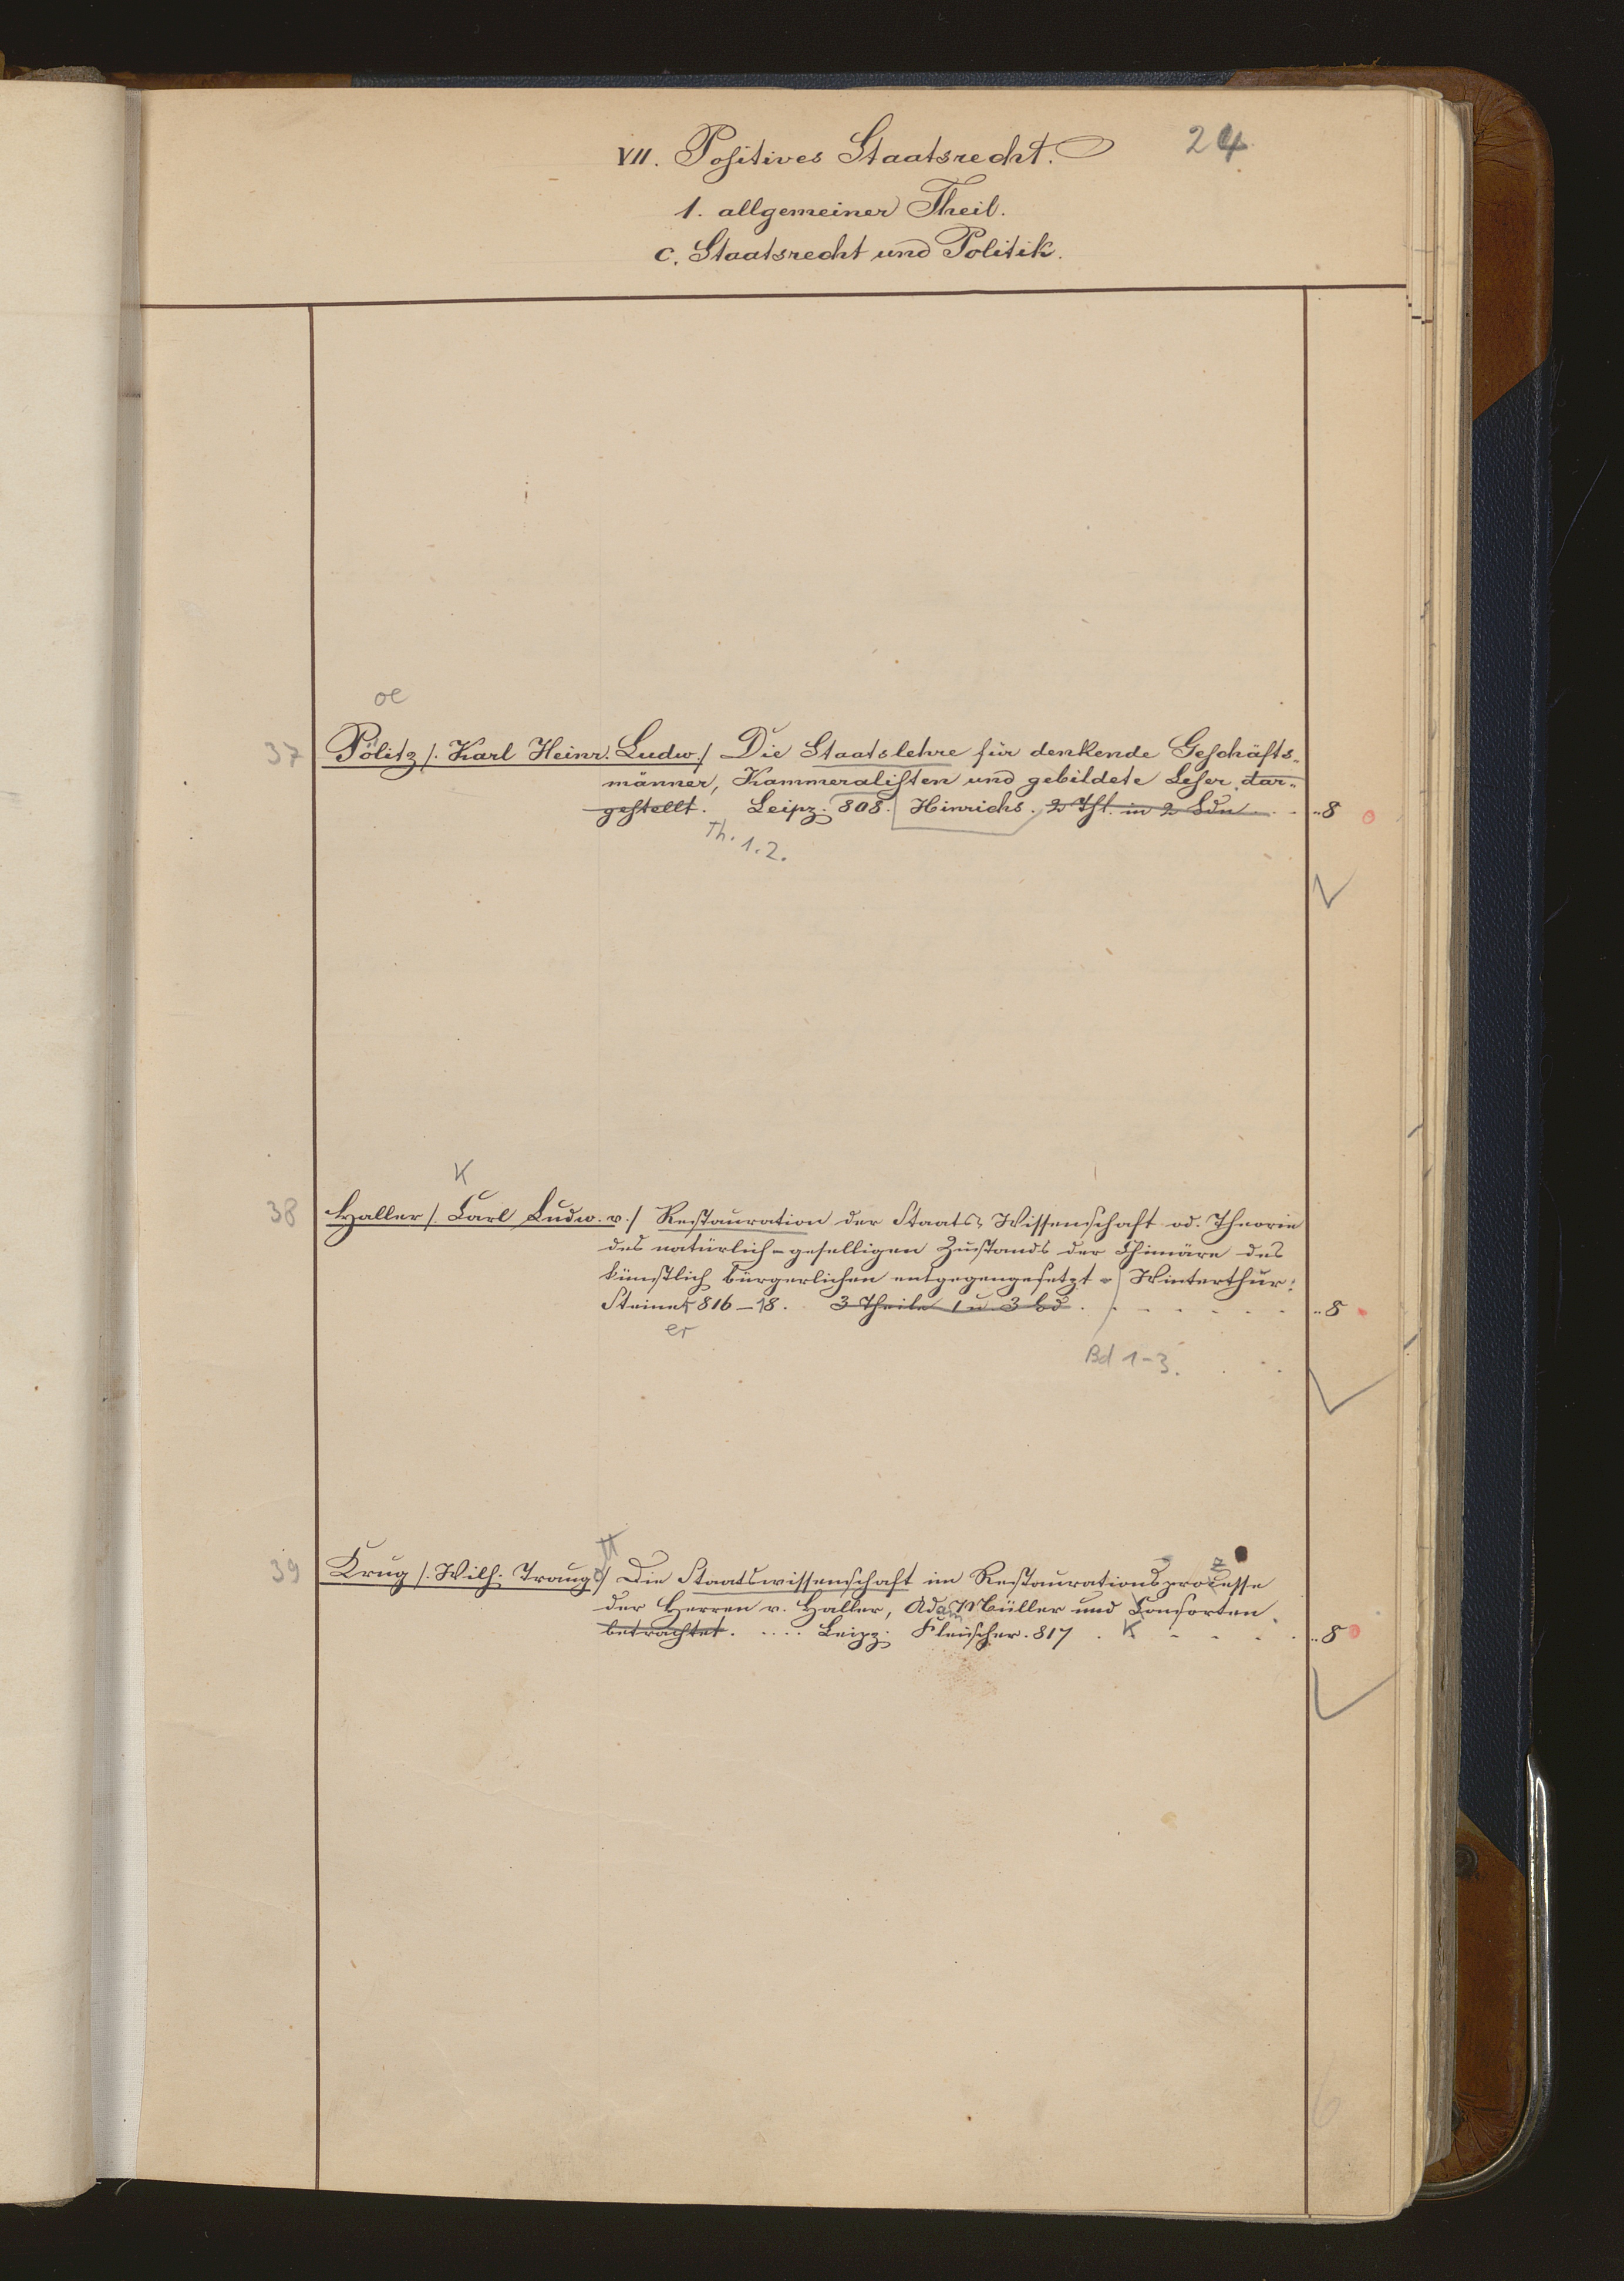 24
VII. Positives Staatsrecht.
1. allgemeiner Theil.
c. Staatsrecht und Politik.
oe
37 Pölitz /. Karl Heinr. Ludw./ Die Staatslehre für denkende Geschäfts-
männer, Kammeralisten und gebildete Leser dar-
gestellt. Leipz. 808. Hinrichs. 2 Thl. in 2 Bdn ..8
Th. 1.2.
K
38 Haller /. Carl Ludw. v./ Restauration der Staats-Wissenschaft od. Theorie
des natürlich-geselligen Zustands der Chimäre des
künstlich bürgerlichen entgegengesetzt Winterthur:
Steiner 816-18. 3 Theile 1 u. 3 Bd. ..8
er
Bd 1-3.
tt
39 Krug /. Wilh. Traug./ Die Staatswissenschaft im Restaurationsprocesse
z
der Herren v. Haller, Adam Müller und Consorten
betrachtet. .... Leipz. Fleischer. 817 . K ..8
6